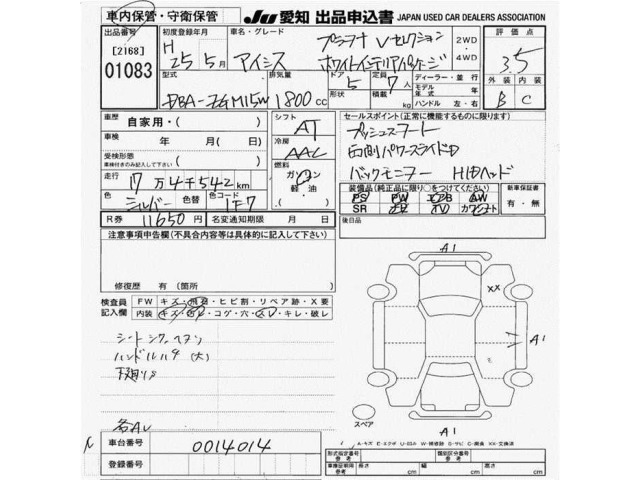 車内保管・守衛保管
JU 愛知 出品申込書 JAPAN USED CAR DEALERS ASSOCIATION
出品番号
[2168]
01083
初度登録年月
H 25 5月
車名・グレード
アイシス
プラタナ Vセレクション
ホワイトインテリアパッケージ
2WD・4WD
評価点
3.5
型式
DBA-ZGM15W
排気量
1800 cc
ドア 5
形状
定員 7 人
積載 kg
ディーラー・並行
モデル年式 年
ハンドル 左・右
外装 内装
B C
車歴 自家用・( )
車検 年 月( 日)
受検形態
車検付きのみ記入して下さい
( )
走行 17万4千542 km
色 シルバー 色替 色コード 1F7
シフト AT
冷房 AAC
燃料
ガソリン
軽油
( )
セールスポイント(正常に機能するものに限ります)
プッシュスタート
両側パワースライドD
バックモニター HIDヘッド
装備品(純正品に限り○をつけてください)
PS PW エアB AW
SR 革 TV カワシート
新車保証書
有・無
R券 11650 円 名変通知期限 月 日
後日品
注意事項申告欄(不具合内容等は具体的に記入して下さい)
修復歴 有(箇所 )
検査員記入欄
FW キズ・飛石・ヒビ割・リペア跡・X要
内装 キズ・汚レ・コゲ・穴・スレ・キレ・破レ
ハンドルハゲ(大)
下廻りサビ
A1
XX
A1
A1
スペア
車台番号 0014014
登録番号
型式指定番号 参考
類別区分番号 参考
車検証期間 参考 長さ cm 幅 cm 高さ cm